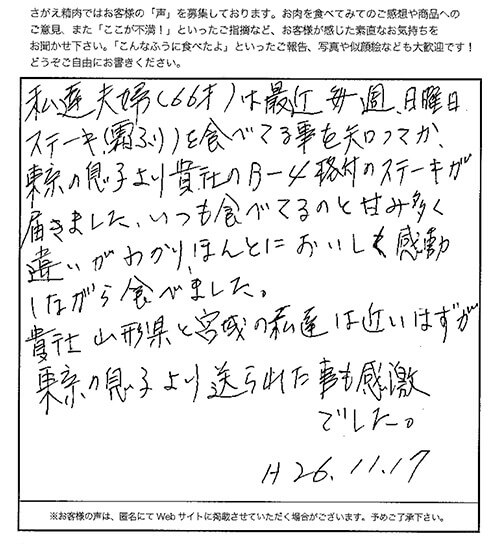 さがえ精肉ではお客様の「声」を募集しております。お肉を食べてみてのご感想や商品への
ご意見、また「ここが不満!」といったご指摘など、お客様が感じた素直なお気持ちを
お聞かせ下さい。「こんなふうに食べたよ」といったご報告、写真や似顔絵なども大歓迎です!
どうぞご自由にお書きください。
私達夫婦(66才)は最近毎週、日曜日
ステーキ(霜ふり)を食べてる事を知ってか、
東京の息子より貴社のB-4格付のステーキが
届きました、いつも食べてるのと甘み多く
違いがわかりほんとにおいしく感動
しながら食べました。
貴社山形県と宮城の私達は近いはずが
東京の息子より送られた事も感激
でした。
H26.11.17
※お客様の声は、匿名にてWebサイトに掲載させていただく場合がございます。予めご了承下さい。